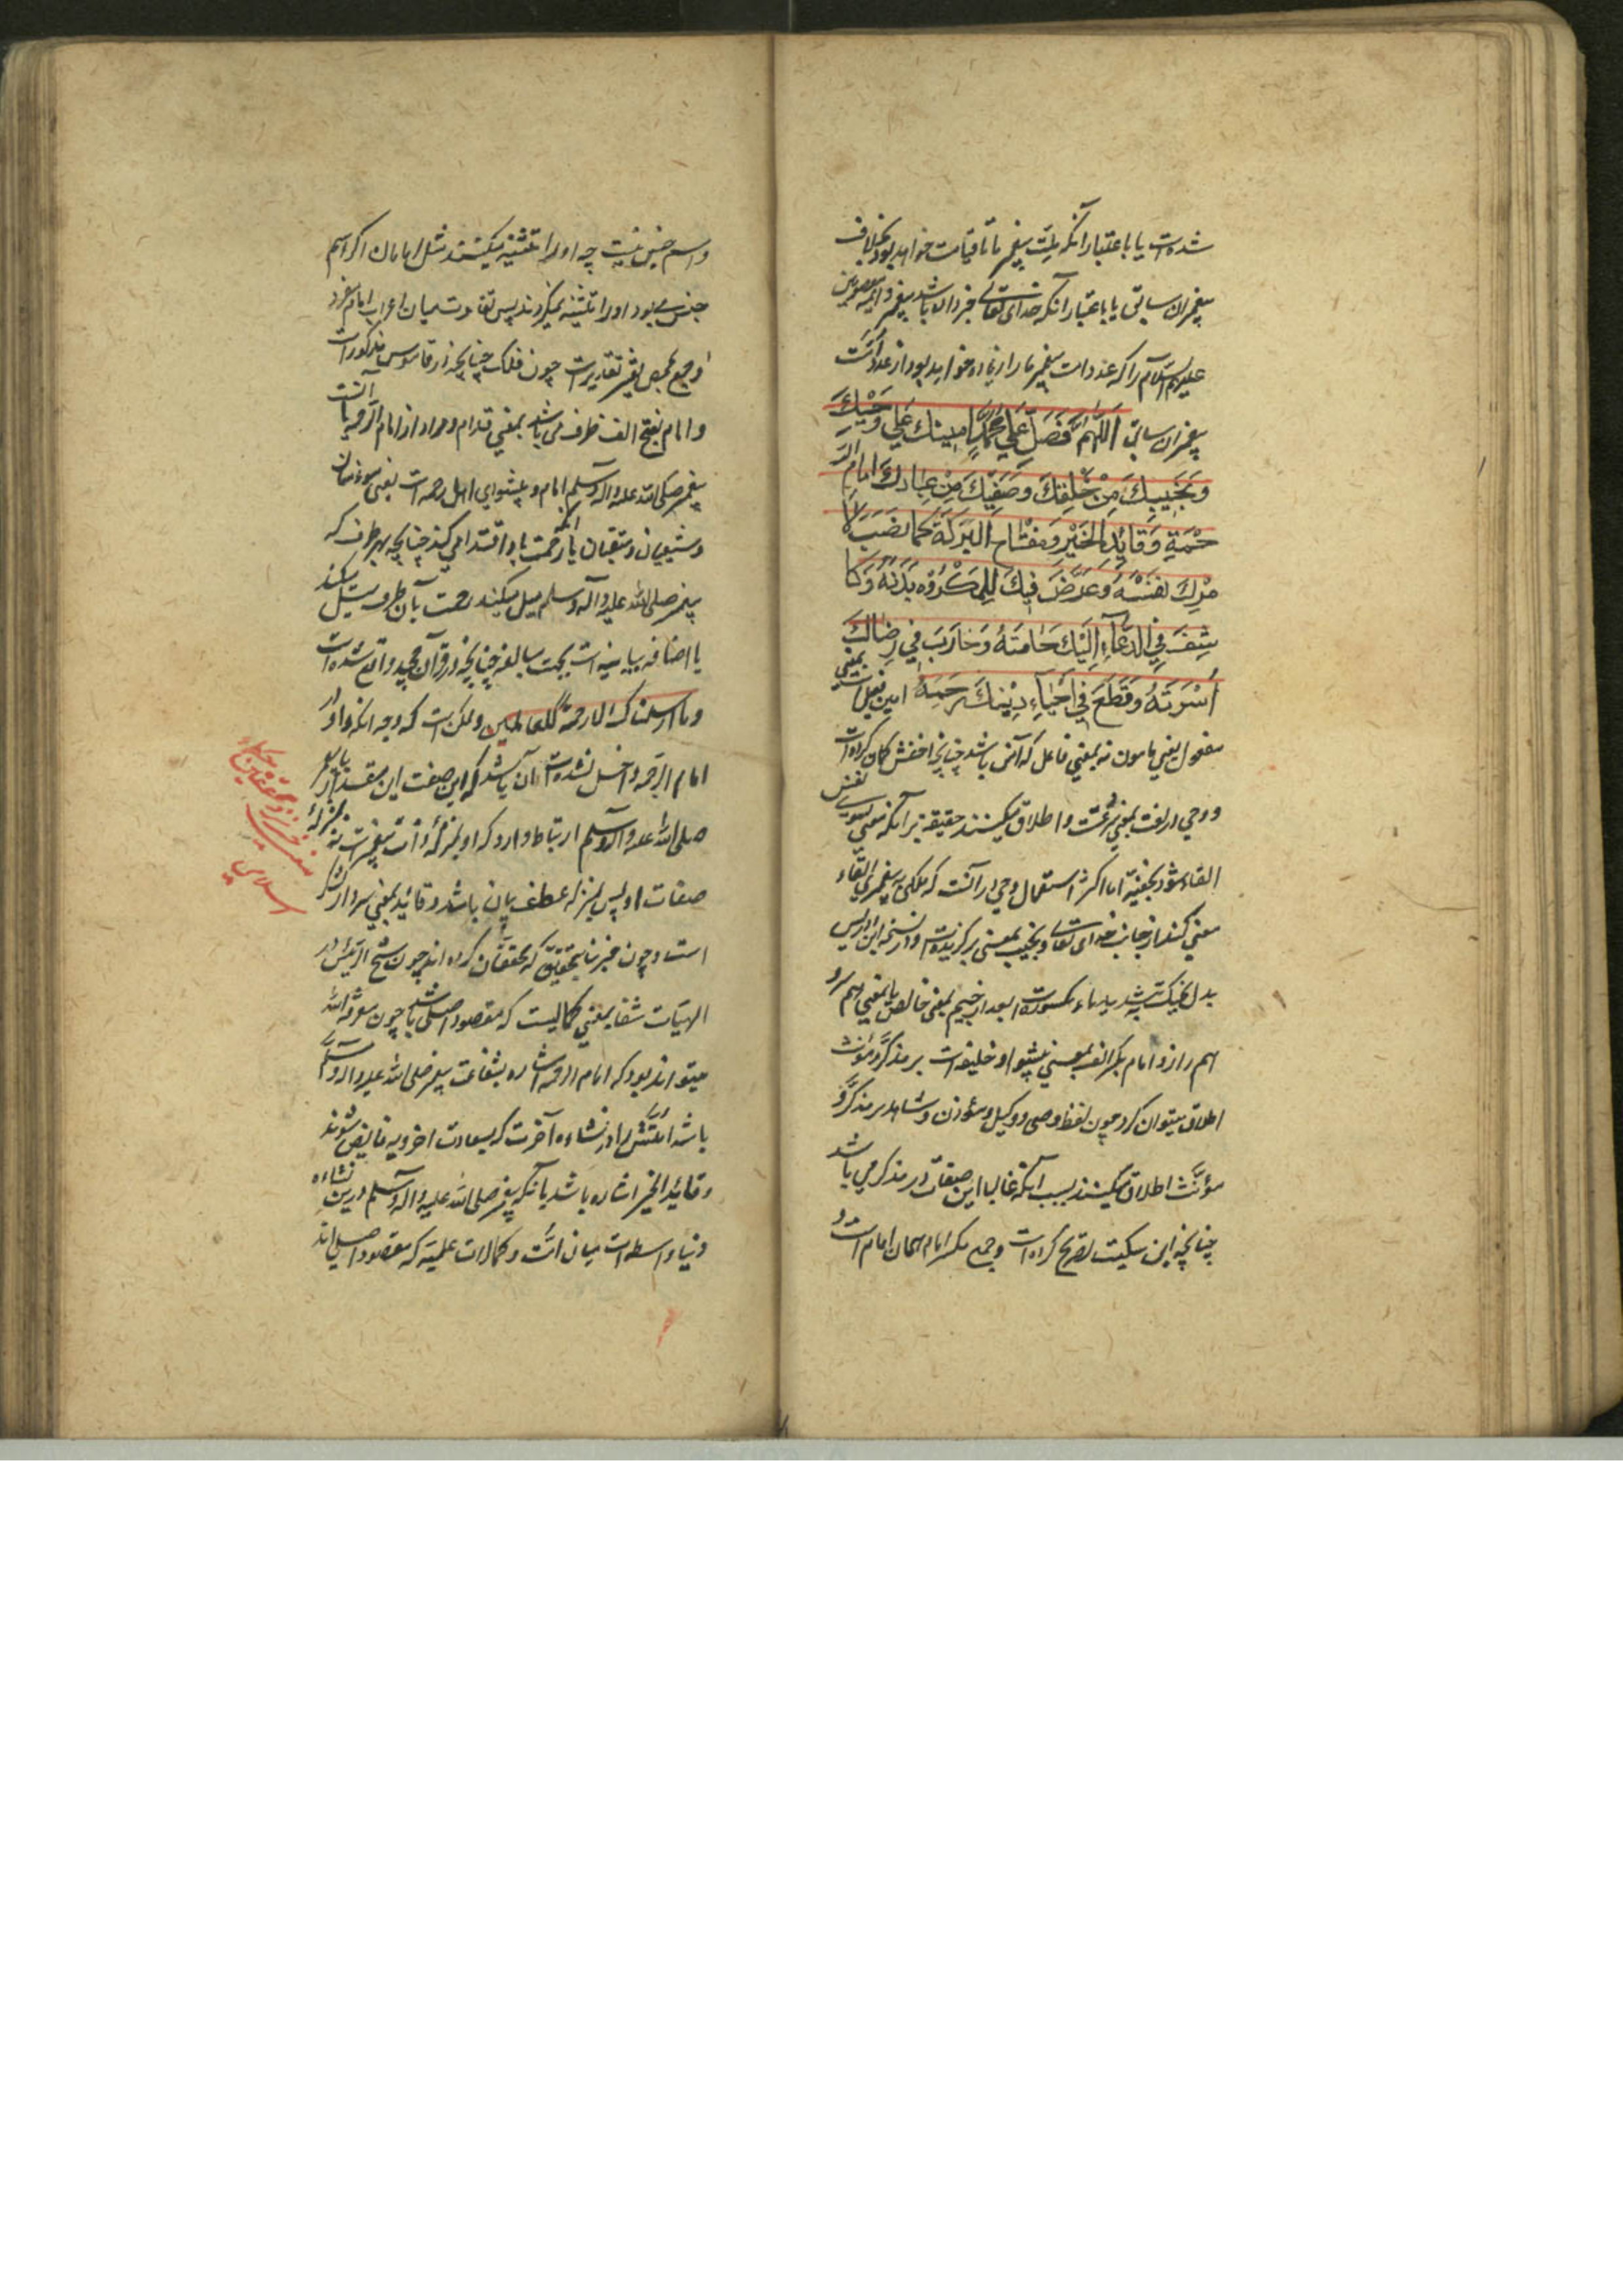 شده است یا باعتبار آنکه ملت پیغمبر ما تا قیامت خواهد بود بخلاف
پیغمبران سابق یا باعتبار آنکه خدای تعالی خبر داده باشد پیغمبر و ائمه معصومین
علیهم السلام را که عدد امت پیغمبر ما زیاده خواهد بود از عدد امت
پیغمبران سابق اَللّهُمَّ فَصَلِّ عَلی مُحَمَّدٍ اَمینِكَ عَلی وَحْیِكَ
وَنَجیبِكَ مِنْ خَلْقِكَ وَصَفِیِّكَ مِنْ عِبادِكَ اِمامِ الرَّ
حْمَةِ وَقائِدِ الْخَیْرِ وَمِفْتاحِ الْبَرَکَةِ کَما نَصَبَ لِاَ
مْرِكَ نَفْسَهُ وَعَرَّضَ فیكَ لِلْمَکْرُوهِ بَدَنَهُ وَکا
شَفَ فِی الدُّعآءِ اِلَیْكَ حامَّتَهُ وَحارَبَ فی رِضاكَ
اُسْرَتَهُ وَقَطَعَ فی اِحْیآءِ دینِكَ رَحِمَهُ امین فعیل بمعنی
مفعول یعنی مامون نه بمعنی فاعل که آمن باشد چنانچه اخفش گمان کرده است
و وحی در لغت بمعنی سرعت است و اطلاق میکنند حقیقة بر آنکه معنی بسوی نفس
القاء شود بخفیه اما اکثر استعمال وحی در آنست که ملکی به پیغمبری القاء
معنی کند از جانب خدای تعالی و نجیب بمعنی برگزیده است و در نسخه ابن ادریس
بدل نجیبك بتشدید یاء مکسوره است بعد از جیم بمعنی خالص یا بمعنی هم سر و
هم راز و امام بکسر الف بمعنی پیشوا و خلیفه است بر مذکر و مؤنث
اطلاق میتوان کرد چون لفظ وصی و وکیل و مؤذن و شاهد بر مذکر و
مؤنث اطلاق میکنند بسبب آنکه غالبا این صفات در مذکر می باشد
چنانچه ابن سکیت تصریح کرده است و جمع مکسر امام همان امام است و
و اسم جنس نیست چه او را تثنیه میکنند مثل امامان اگر اسم
جنس می بود او را تثنیه نمیکردند پس تفاوت میان اعراب امام مفرد
و جمع بمحض تغیر تقدیر است چون فلک چنانچه از قاموس مذکور است
و امام بفتح الف ظرف می باشد بمعنی قدام و مراد از امام الرحمه یا آنست
پیغمبر صلی الله علیه و آله و سلم امام و پیشوای اهل رحمت است یعنی مؤمنان
و شیعیان و متقیان یا آنکه رحمت باو اقتدا می کند چنانچه بهر طرف که
پیغمبر صلی الله علیه و آله و سلم میل میکنند رحمت بآن طرف میل میکند
یا اضافه بیانیه است بجهت مبالغه چنانچه در قرآن مجید واقع شده است
وما ارسلناك الا رحمة للعالمین و ممکن است که وجه آنکه واو در
امام الرحمه داخل نشده است آن باشد که این صفت این مقدار به پیغمبر
صلی الله علیه و آله و سلم ارتباط دارد که او بمنزلهٔ ذات پیغمبر است نه بمنزلهٔ
صفات او پس بمنزله عطف بیان باشد و قائد بمعنی سردار لشکر
است و چون خیر بنابر تحقیق که محققان کرده اند چون شیخ الرئیس در
الهیات شفا بمعنی کمالیست که مقصود اصلی باشد چون معرفة الله
میتواند بود که امام الرحمه اشاره بشفاعت پیغمبر صلی الله علیه و آله و سلم
باشد امتش را در نشاءه آخرت که بسعادت اخرویه فایض شوند
و قائد الخیر اشاره باشد بآنکه پیغمبر صلی الله علیه و آله و سلم درین نشاءه
دنیا واسطه است میان امت و کمالات علمیه که مقصود اصلی اند